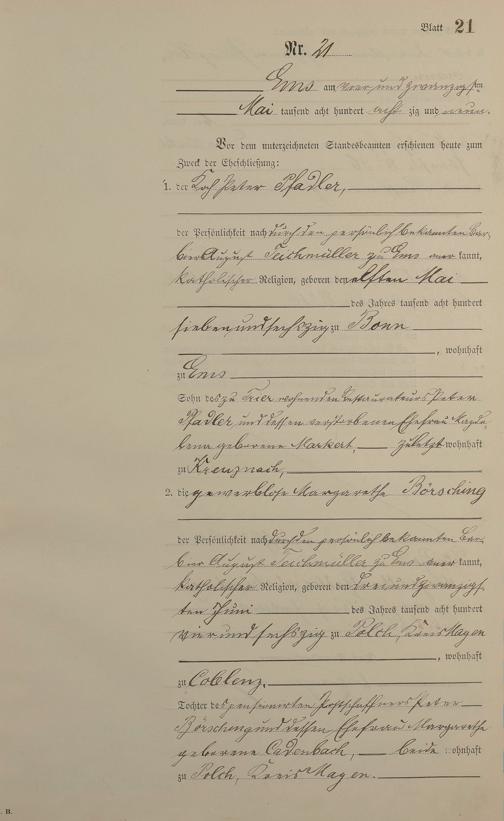 Blatt 21
Nr. 21
Ems am vier und zwanzigsten
Mai tausend acht hundert acht zig und neun.
Vor dem unterzeichneten Standesbeamten erschienen heute zum
Zweck der Eheschließung:
1. der Koch Peter Pfadler,
der Persönlichkeit nach durch den persönlich bekannten Bar-
bier August Teichmüller zu Ems aner kannt,
katholischer Religion, geboren den elften Mai
des Jahres tausend acht hundert
sieben und sechszig zu Bonn
, wohnhaft
zu Ems
Sohn des zu Trier wohnenden Restaurateurs Peter
Pfadler, und dessen verstorbenen Ehefrau Magda-
lena geborene Markert, zuletzt wohnhaft
zu Kreuznach,
2. die gewerblose Margarethe Börsching
der Persönlichkeit nach durch den persönlich bekannten Bar-
bier August Teichmüller zu Ems aner kannt,
katholischer Religion, geboren den drei und zwanzigs-
ten Juni des Jahres tausend acht hundert
vier und sechszig zu Polch, Kreis Mayen
, wohnhaft
zu Coblenz.
Tochter des pensionierten Postschaffners Peter
Börsching und dessen Ehefrau Margarethe
geborene Cadenbach, beide wohnhaft
zu Polch, Kreis Mayen.
B.